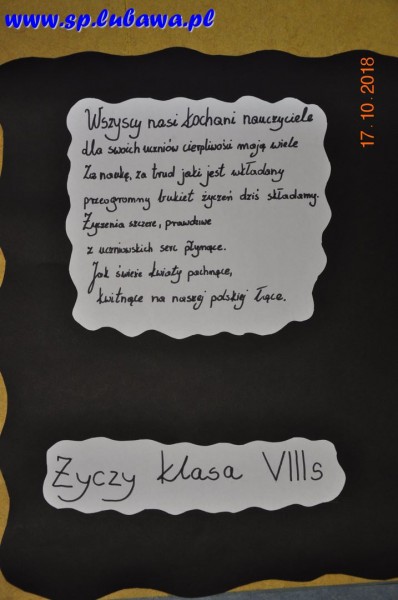 www.sp.lubawa.pl
17.10.2018
Wszyscy nasi kochani nauczyciele
dla swoich uczniów cierpliwości mają wiele
Za naukę, za trud jaki jest wkładany
przeogromny bukiet życzeń dziś składamy.
Życzenia szczere, prawdziwe
z uczniowskich serc płynące.
Jak świeże kwiaty pachnące,
kwitnące na naszej polskiej łące.
Życzy klasa VIIIs